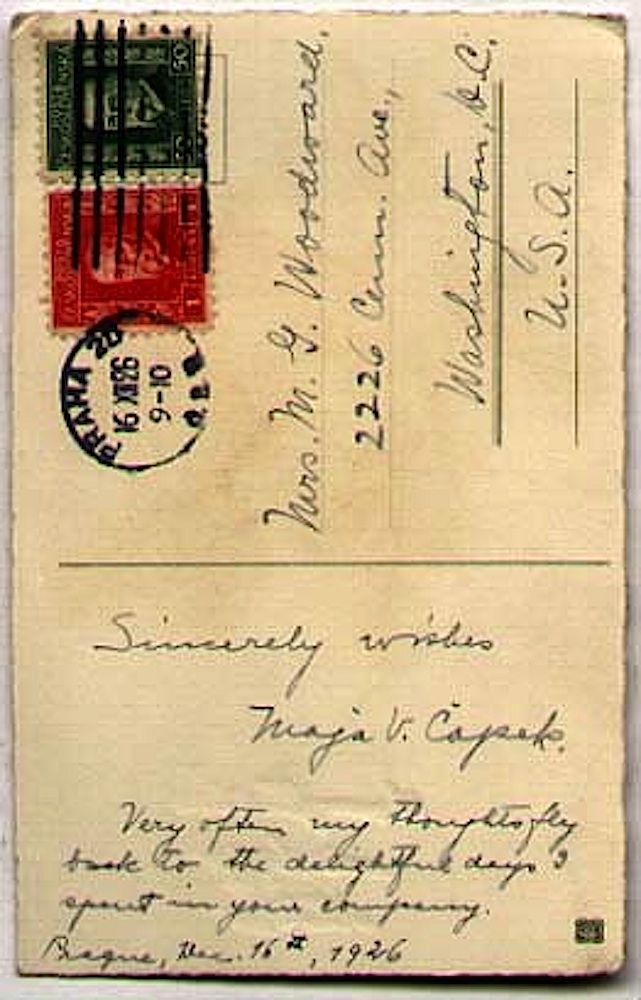 50
1
PRAHA 28
16 XII 26
9-10
Mrs. M. G. Woodward,
2226 Conn. Ave.,
Washington, D.C.
U.S.A.
Sincerely wishes
Maja V. Čapek.
Very often my thoughts fly
back to the delightful days I
spent in your company.
Prague, Dec. 16th, 1926